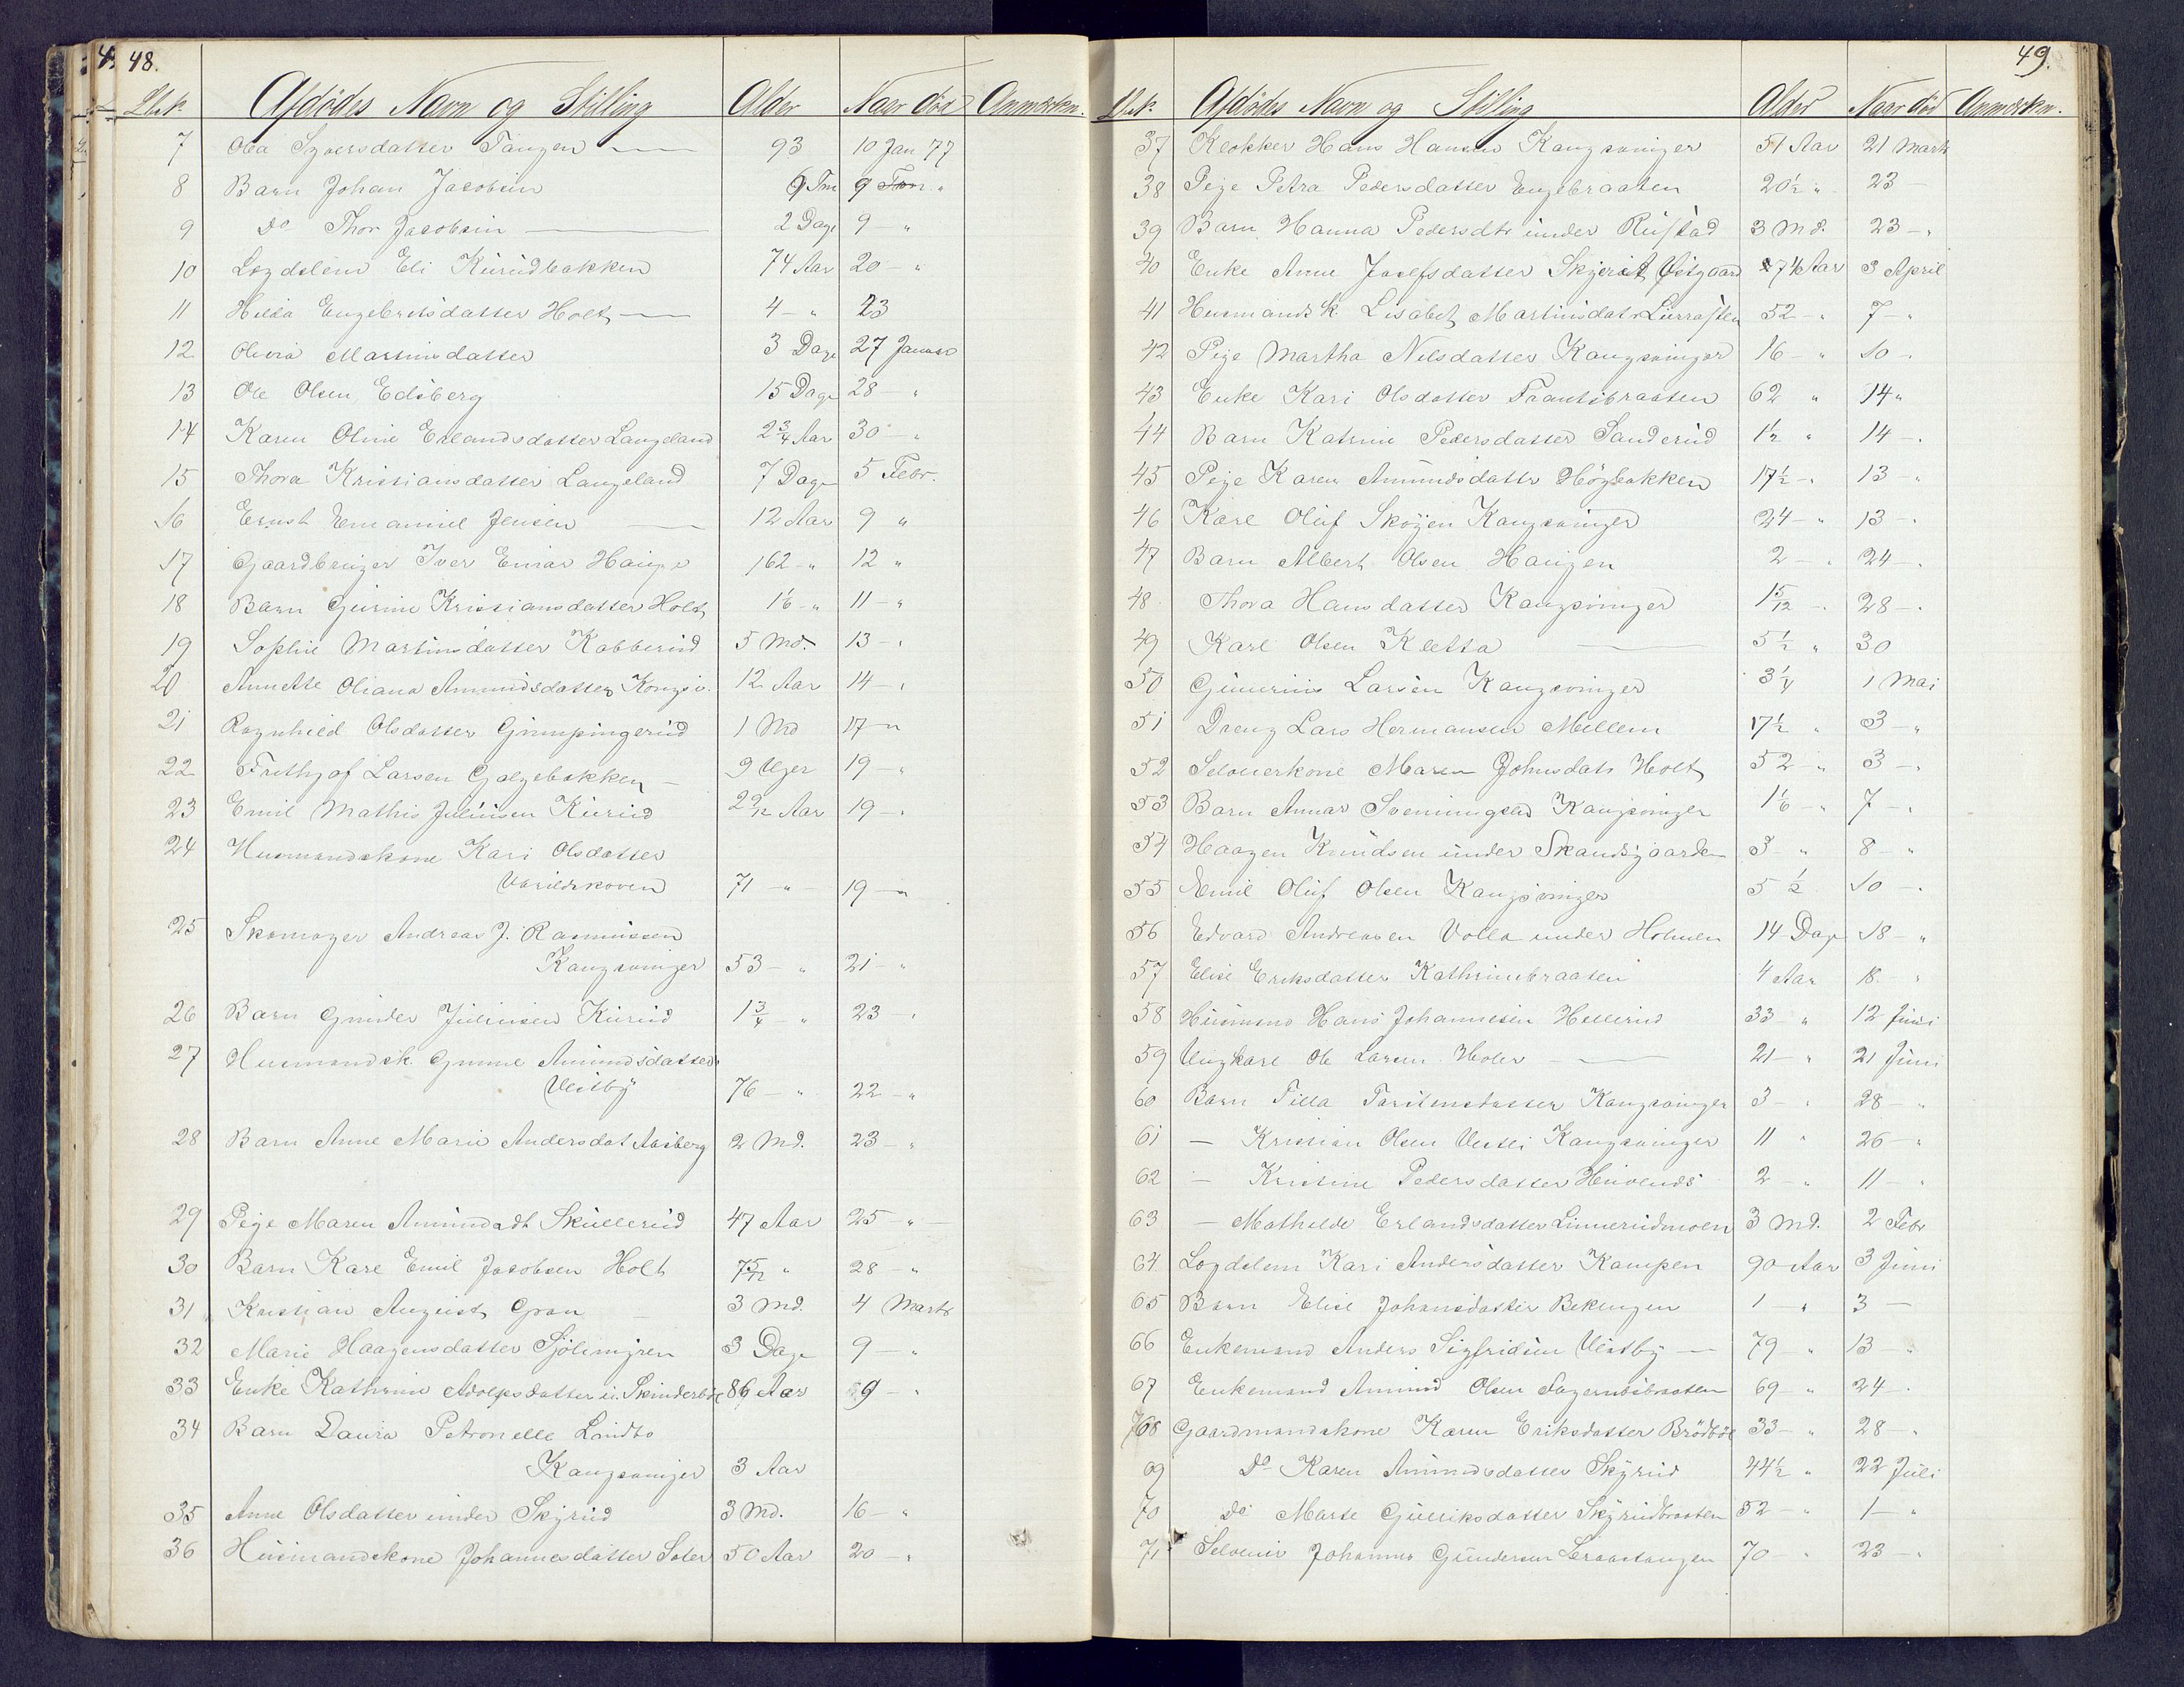 48.
Afdödes Navn og Stilling Alder Naar död Anmærkn.
7 Olea Syversdatter Tangen 93 10 Jan 77
8 Barn Johan Jacobsen 9 "
9 Do Thor Jacobsen 2 Dage 9 "
10 Logdslem Eli Kurudbakken 74 Aar 20 - "
11 Hilda Engebretsdatter Holt 4 - " 23
12 Olivia Martinsdatter 3 Dage 27 Januar
13 Ole Olsen Edsberg 15 Dage 28 - "
14 Karen Oline Erlandsdatter Langeland 2 3/4 Aar 30 - "
15 Thora Kristiansdatter Langeland 7 Dage 5 Febr.
16 Ernst Emanuel Jensen 12 Aar 9 "
17 Gaardbruger Iver Einar Hauge 62 - " 12 "
18 Barn Gurine Kristiansdatter Holt 1 1/6 - " 11 - "
19 Sophie Martinsdatter Kabberud 5 Md. 13 - "
20 Annette Oliana Amundsdatter Kongsv. 12 Aar 14 - "
21 Ragnhild Olsdatter Grimpingerud 1 Md 17 - "
22 Frithjof Larsen Galgebakken 9 Uger 19 - "
23 Emil Mathis Juliusen Kurud Aar 19 - "
24 Husmandskone Kari Olsdatter
Varildskoven 71 - " 19 - "
25 Skomager Andreas J. Rasmussen
Kongsvinger 53 - " 21 - "
26 Barn Gunder Juliusen Kurud 1 3/4 - " 23 - "
27 Husmandsk. Gunne Amundsdatter
Vestby 76 - " 22 - "
28 Barn Anne Marie Andersdat Aasberg 2 Md. 23 - "
29 Pige Maren Amundsdt Skullerud 47 Aar 25 - "
30 Barn Karl Emil Jacobsen Holt 7 5/12 " 28 - "
31 Kristian August Gran 3 Md. 4 Marts
32 Marie Haagensdatter Sjölimyren 3 Dage 9 - "
33 Enke Kathrine Adolfsdatter u. Skinderböl 86 Aar 9 - "
34 Barn Laura Petronelle Lindbo
Kongsvinger 3 Aar
35 Anne Olsdatter under Skyrud 3 Md. 16 - "
36 Husmandskone Johannesdatter Soter 50 Aar 20 - "
49.
Afdödes Navn og Stilling Alder Naar död Anmærkn.
37 Klokker Hans Hansen Kongsvinger 51 Aar 21 Marts
38 Pige Petra Pedersdatter Engebraaten 20 1/2 " 23 -
39 Barn Hanna Pedersdtr under Rustad 3 Md. 23 - "
40 Enke Anne Josefsdatter Østgaard 74 Aar 3 April
41 Husmandsk. Lisabet Martinsdatr 52 - " 7 - "
42 Pige Martha Nilsdatter Kongsvinger 16 - " 10 - "
43 Enke Kari Olsdatter Frantsbraaten 62 " 14 "
44 Barn Katrine Pedersdatter Sanderud 1 1/2 " 14 - "
45 Pige Karen Amundsdattr Högbakken 17 1/2 - " 13 - "
46 Karl Oluf Sköyen Kongsvinger 24 - " 13 - "
47 Barn Albert Olsen Haugen 2 - " 24 - "
48 Thora Hansdatter Kongsvinger 1 5/12 - " 28 - "
49 Karl Olsen Kletta 5 1/2 " 30
50 Gunerius Larsen Kongsvinger 3 1/4 1 Mai
51 Dreng Lars Hermansen Mellem 17 1/2 " 3 - "
52 Selveierkone Maren Johnsdatr Holt 52 - " 3 - "
53 Barn Annar Sveningsen Kongsvinger 1 1/6 - " 7 - "
54 Haagen Knudsen under Skandsgaarden 3 - " 8 - "
55 Emil Oluf Olsen Kongsvinger 5 1/2 10 - "
56 Edvard Andreasen Volla under Holmen 14 Dage 18 - "
57 Elise Eriksdatter Kathrinebraaten 4 Aar 18. "
58 Husmand Hans Johannesen Hellerud 33 " 12 Juni
59 Ungkarl Ole Larsen Holer 21 - " 21 Juni
60 Barn Tilla Torstensdatter Kongsvinger 3 - " 28 - "
61 - Kristian Olsen Kongsvinger 11 " 26 - "
62 - Kristine Pedersdatter 2 - " 11 - "
63 - Mathilde Erlandsdatter Linnerudmoen 3 Md. 2 Febr
64 Logdslem Kari Andersdatter Kampen 90 Aar 3 Juni
65 Barn Elise Johansdatter Bekengen 1 - " 3 -
66 Enkemand Anders Sigfridsen Vestby 79 - " 13 - "
67 Enkemand Amund Olsen 69 - " 24 - "
68 Gaardmandskone Karen Eriksdatter Brödböl 33 - " 28 - "
69 Do Karen Amundsdatter Skyrud 44 1/2 " 22 Juli
70 Do Marte Gulliksdatter Skyrudbraaten 52 - " 1 - "
71 Selveier Johannes Gundersen 70 - " 23 - "